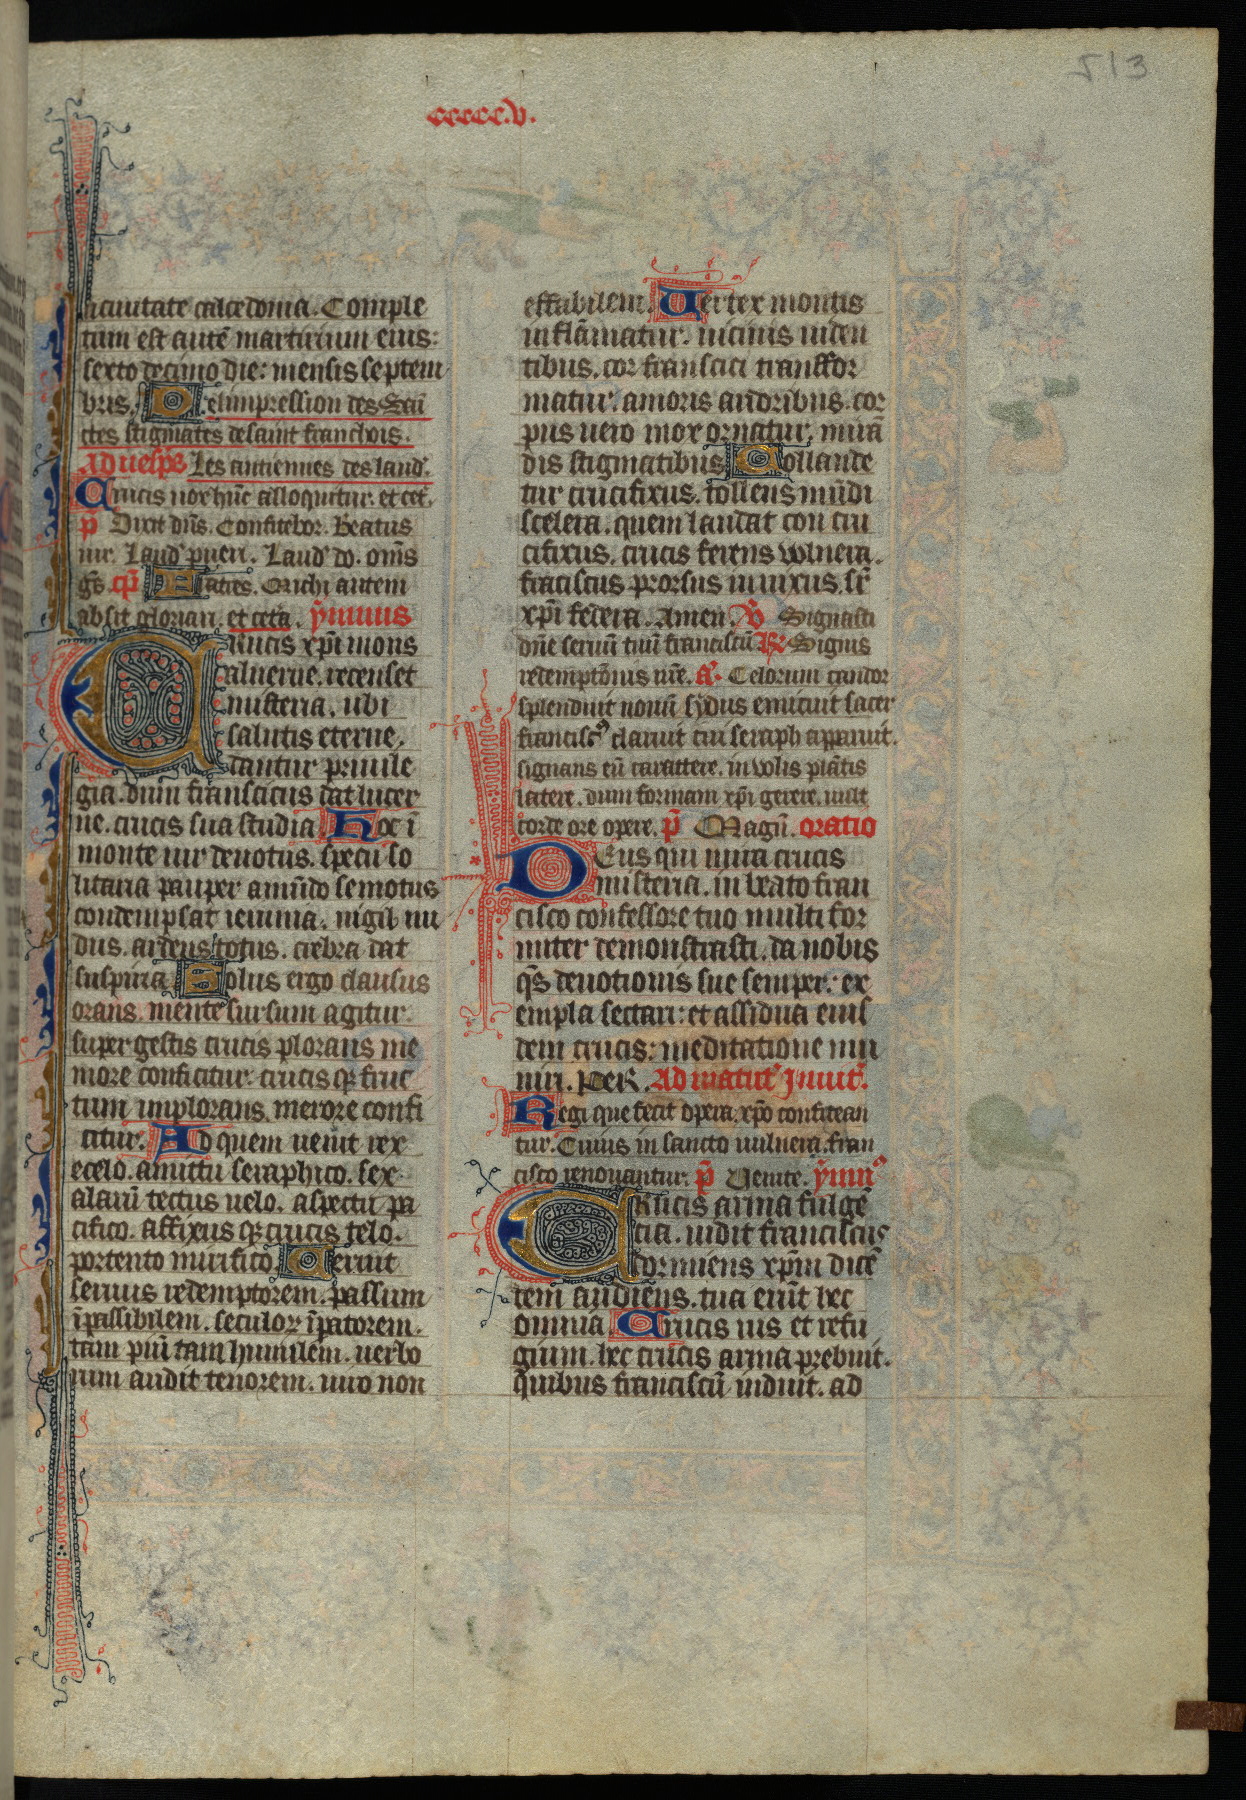 513
ccccc.v.
in ciuitate calcedonia. Comple
tum est autē martirium eius:
sexto decimo die: mensis septem
bris. De limpression des Sain
ctes stigmates de saint franchois.
Ad uesp̄s Les antiennes des laud'.
Crucis uox hūc alloquitur. et cet.
p̄ Dixit dn̄s. Confitebor. Beatus
uir. Laud' pueri. Laud' do. om̄s
gn̄s. cp̄. Fratres. Michi autem
absit gloriari. et cet'a. ymnus
Crucis xp̄i mons
aluerne. recenset
misteria. ubi
salutis eterne.
dantur priuile
gia. dum franscicus dat lucer
ne. crucis sua studia. Hoc ī
monte uir deuotus. specu so
litaria pauper a mūdo semotus
condempsat ieiunia. nigil nu
dus. ardens totus. crebra dat
suspiria. Solus ergo clausus
orans. mente sursum agitur.
super gestis crucis plorans me
more conficitur: crucisq3 fruc
tum implorans. merore confi
citur. Ad quem uenit rex
e celo. amictu seraphico. sex
alarū tectus uelo. aspectu pa
cifico. affixusq3 crucis telo.
portento mirifico. Cernit
seruus redemptorem. passum
īpassibilem. seculoꝝ īpatorem.
tam piū tam humilem. uerbo
rum audit tenorem. uiro non
effabilem. Uertex montis
inflāmatur. uicinis uiden
tibus. cor franscici transfor
matur. amoris ardoribus. cor
pus uero mox ornatur. mirā
dis stigmatibus. Collaude
tur crucifixus. tollens mūdi
scelera. quem laudat con cru
cifixus. crucis ferens vulnera.
frāciscus prorsus innixus. sr̄
xp̄i federa. Amen. V̄ Signasti
dn̄e seruū tuū franciscū R̄. Signis
redemptōnis nr̄e. a'. Celorum candor
splenduit nouū sydus emicuit sacer
francisc9 claruit cui seraph apparuit.
signans eū carattere. in volis plātis
latere. dum formam xp̄i gerere. uult
corde ore opere. p̄ Magn̄. oratio
Deus qui mira crucis
misteria. in beato fran
cisco confessore tuo multi for
miter demonstrasti. da nobis
qs̄ deuotionis sue semper: ex
empla sectari: et assidua eius
dem crucis: meditatione mu
niri. PeR. Ad matut' Inuit'.
Regi que fecit opera. xp̄o confitean
tur. Cuius in sancto uulnera. fran
cisco renouantur. p̄ Uenite. ymn9
Crucis arma fulgē
tia. uidit franciscus
dormiens xp̄m dicē
tem audiens. tua erūt hec
omnia. Crucis uis et refu
gium. hec crucis arma prebuit.
quibus franciscū induit. ad